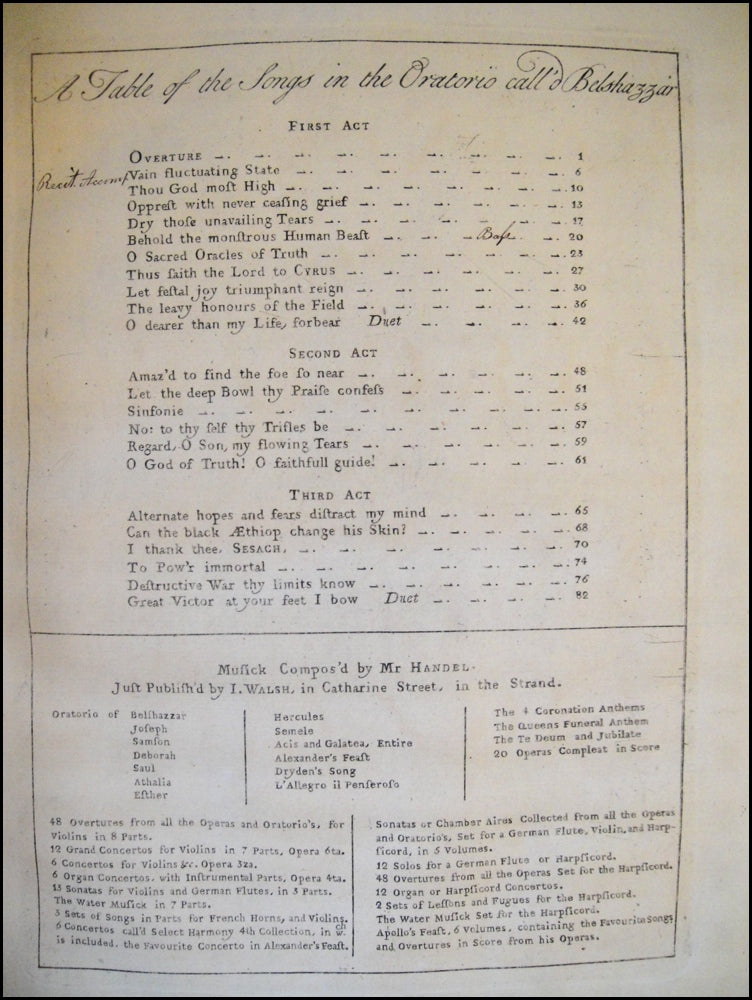 A Table of the Songs in the Oratorio call'd Belshazzar
FIRST ACT
OVERTURE 1
Recit. Accomp. Vain fluctuating State 6
Thou God moſt High 10
Oppreſt with never ceaſing grief 13
Dry thoſe unavailing Tears 17
Behold the monſtrous Human Beaſt 20
O Sacred Oracles of Truth 23
Thus ſaith the Lord to CYRUS 27
Let feſtal joy triumphant reign 30
The leavy honours of the Field 36
O dearer than my Life, forbear Duet 42
SECOND ACT
Amaz'd to find the foe ſo near 48
Let the deep Bowl thy Praiſe confeſs 51
Sinfonie 55
No: to thy ſelf thy Trifles be 57
Regard, O Son, my flowing Tears 59
O God of Truth! O faithfull guide! 61
THIRD ACT
Alternate hopes and fears diſtract my mind 65
Can the black Æthiop change his Skin? 68
I thank thee, SESACH, 70
To Pow'r immortal 74
Deſtructive War thy limits know 76
Great Victor at your feet I bow Duet 82
Muſick Compos'd by Mr HANDEL.
Juſt Publiſh'd by I. WALSH, in Catharine Street, in the Strand.
Oratorio of Belſhazzar
Joſeph
Samſon
Deborah
Saul
Athalia
Eſther
Hercules
Semele
Acis and Galatea, Entire
Alexander's Feaſt
Dryden's Song
L'Allegro il Penſeroſo
The 4 Coronation Anthems
The Queens Funeral Anthem
The Te Deum and Jubilate
20 Operas Compleat in Score
48 Overtures from all the Operas and Oratorio's, for
Violins in 8 Parts.
12 Grand Concertos for Violins in 7 Parts, Opera 6ta.
6 Concertos for Violins &c. Opera 3za.
6 Organ Concertos, with Inſtrumental Parts, Opera 4ta.
13 Sonatas for Violins and German Flutes, in 3 Parts.
The Water Muſick in 7 Parts.
3 Sets of Songs in Parts for French Horns, and Violins.
6 Concertos call'd Select Harmony 4th Collection, in wch.
is included, the Favourite Concerto in Alexander's Feaſt.
Sonatas or Chamber Aires Collected from all the Operas
and Oratorio's, Set for a German Flute, Violin, and Harp-
ſicord, in 5 Volumes.
12 Solos for a German Flute or Harpſicord.
48 Overtures from all the Operas Set for the Harpſicord.
12 Organ or Harpſicord Concertos.
2 Sets of Leſſons and Fugues for the Harpſicord.
The Water Muſick Set for the Harpſicord.
Apollo's Feaſt, 6 Volumes, containing the Favourite Songs
and Overtures in Score from his Operas.